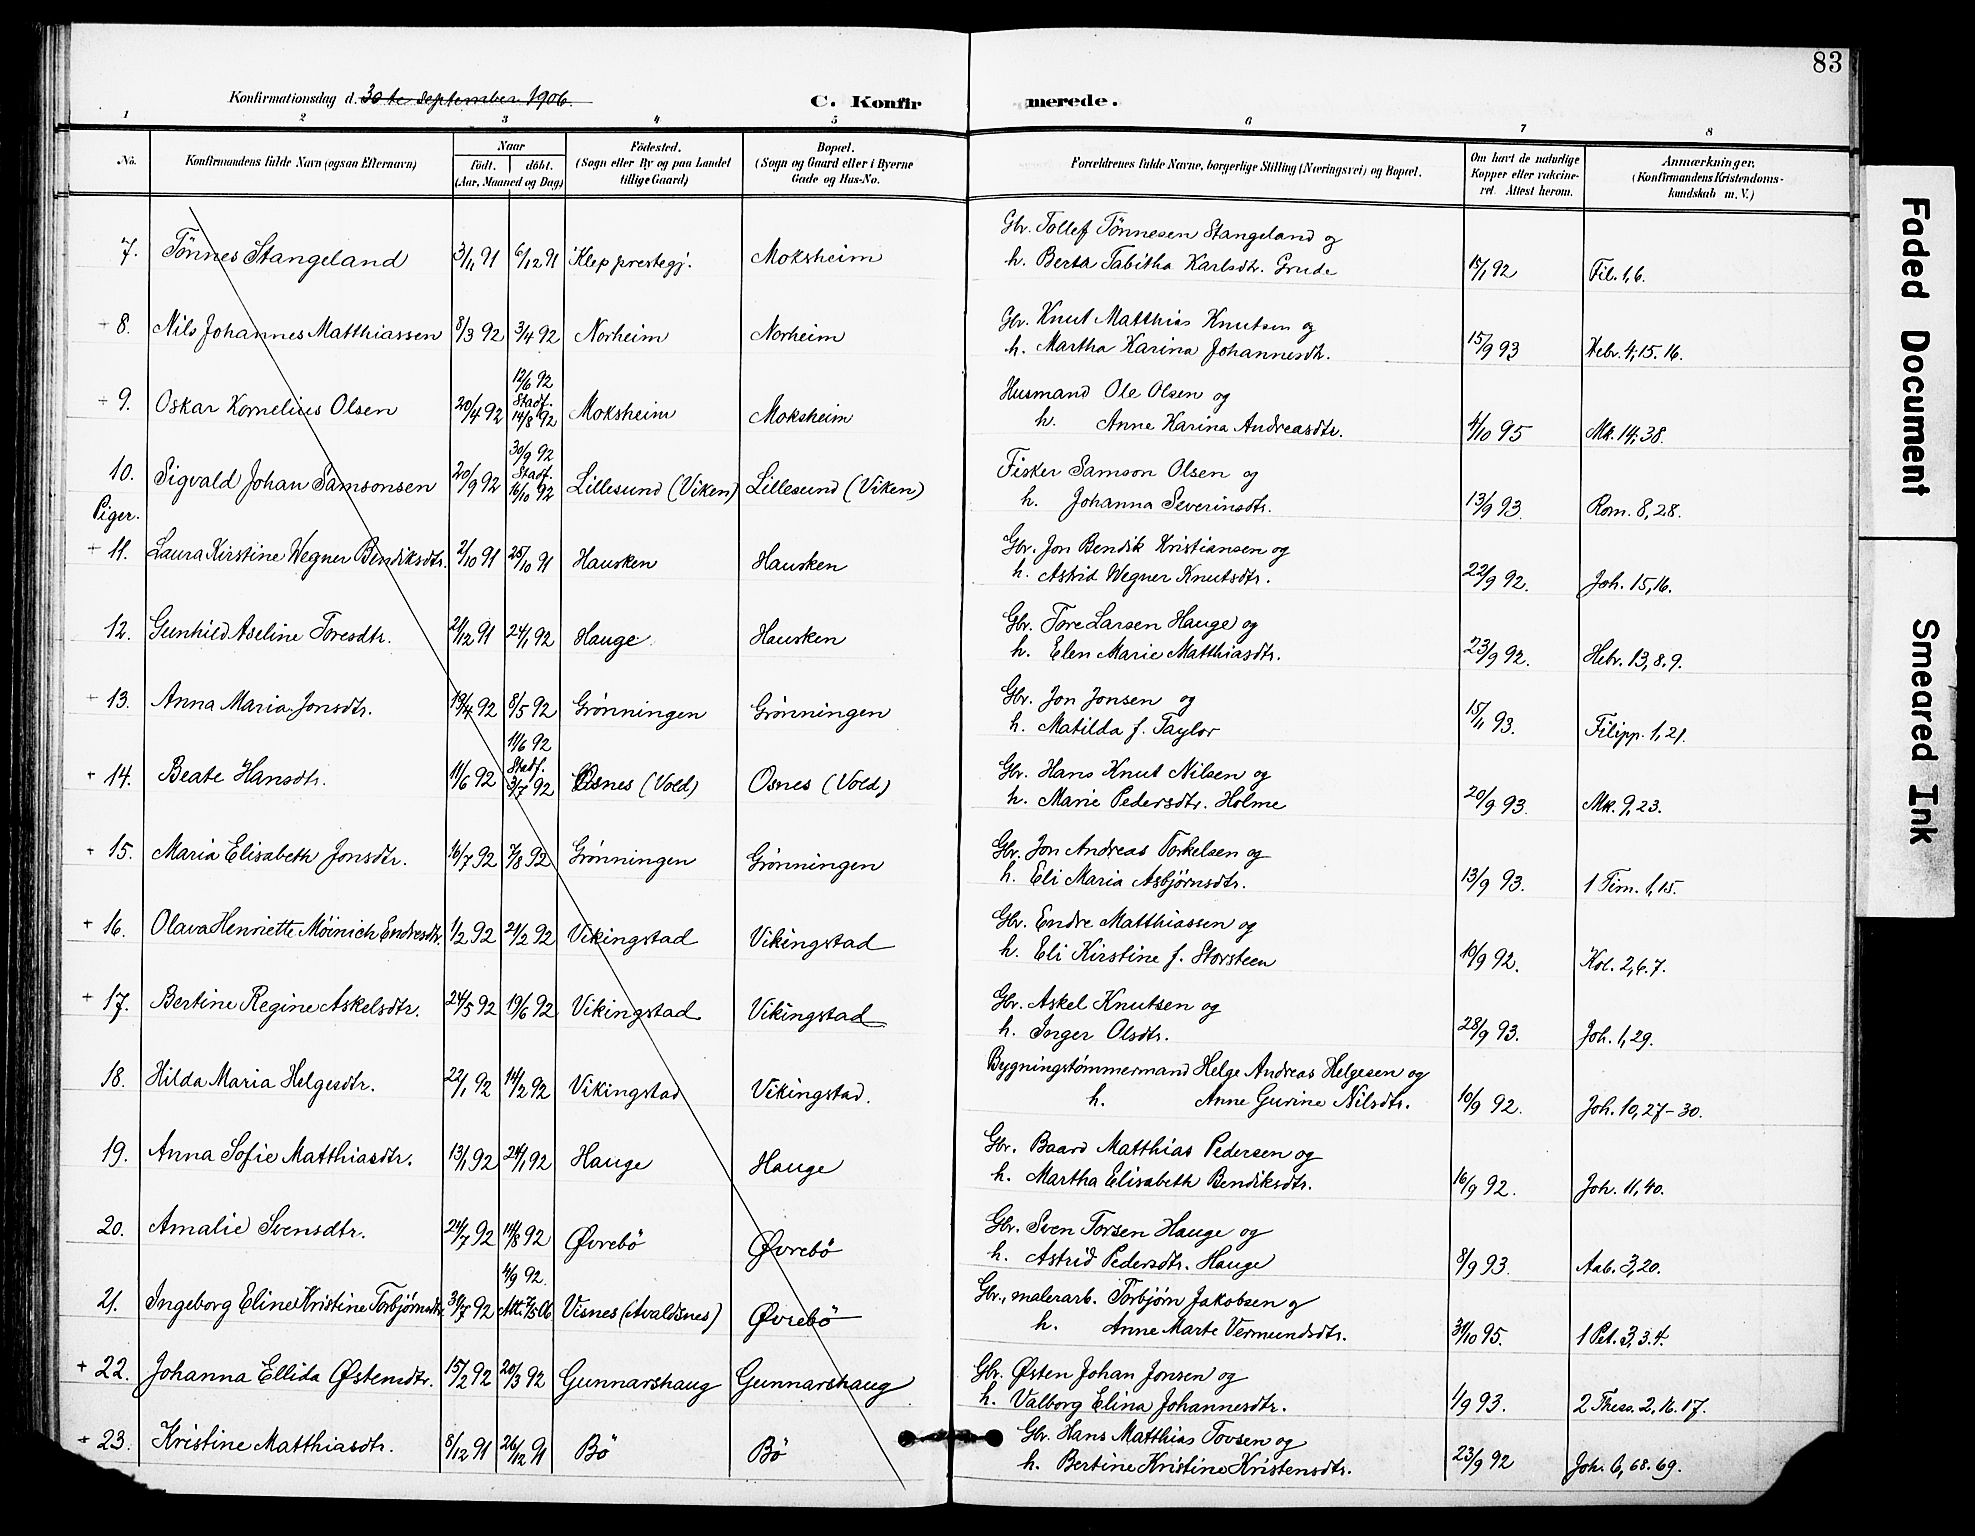 83
Konfirmationsdag d. 30te September 1906.
C. Konfirmerede.
1 2 3 4 5 6 7 8
No. Konfirmandens fulde Navn (ogsaa Efternavn) Naar født. døbt. (Aar, Maaned og Dag) Fødested. (Sogn eller By og paa Landet tillige Gaard) Bopæl. (Sogn og Gaard eller i Byerne Gade og Hus-No. Forældrenes fulde Navne, borgerlige Stilling (Næringsvei) og Bopæl. Om havt de naturlige Kopper eller vakcineret. Attest herom. Anmærkninger. (Konfirmandens Kristendomskundskab m. V.)
7. Tönnes Stangeland 3/11 91 6/12 91 Klep prestegj. Moksheim Gbr. Tollef Tönnesen Stangeland og
h. Berta Tabitha Karlsdtr. Grude 15/1 92 Fil. 1,6.
+ 8. Nils Johannes Matthiassen 8/3 92 3/4 92 Norheim Norheim Gbr. Knut Matthias Knutsen og
h. Martha Karina Johannesdtr. 15/9 93 Hebr. 4,15.16.
+ 9. Oskar Kornelius Olsen 20/4 92 12/6 92 Stadf. 14/8 92 Moksheim Moksheim Husmand Ole Olsen og
h. Anne Karina Andreasdtr. 4/10 95 Mk. 14,38.
10. Sigvald Johan Samsonsen 20/9 92 30/9 92 Stadf. 16/10 92 Lillesund (Viken) Lillesund (Viken) Fisker Samson Olsen og
h. Johanna Severinsdtr. 13/9 93. Rom. 8,28.
Piger.
+ 11. Laura Kirstine Wegner Bendiksdtr. 2/10 91 25/10 91 Hausken Hausken Gbr. Jon Bendik Kristiansen og
h. Astrid Wegner Knutsdtr. 22/9 92. Joh. 15,16.
12. Gunhild Aseline Toresdtr. 21/12 91 24/1 92 Hauge Hausken Gbr. Tore Larsen Hauge og
h. Elen Marie Matthiasdtr. 23/9 92. Hebr. 13,8.9.
+ 13. Anna Maria Jonsdtr. 19/4 92 8/5 92 Grönningen Grönningen Gbr. Jon Jonsen og
h. Matilda f. Taylor 15/11 93. Filipp. 1,21.
+ 14. Beate Hansdtr. 11/6 92 11/6 92 Stadf. 3/7 92 Osnes (Vold) Osnes (Vold) Gbr. Hans Knut Nilsen og
h. Marie Pedersdtr. Holme 20/9 93. Mk. 9,23.
+ 15. Maria Elisabeth Jonsdtr. 16/7 92 7/8 92 Grönningen Grönningen Gbr. Jon Andreas Torkelsen og
h. Eli Maria Asbjörnsdtr. 13/9 93. 1 Tim. 1,15.
+ 16. Olava Henriette Möinich Endresdtr. 1/2 92 21/2 92 Vikingstad Vikingstad Gbr. Endre Matthiassen og
h. Eli Kirstine f. Storsteen 10/9 92. Kol. 2,6.7.
+ 17. Bertine Regine Askelsdtr. 24/5 92 19/6 92 Vikingstad Vikingstad Gbr. Askel Knutsen og
h. Inger Olsdtr. 28/9 93. Joh. 1,29.
18. Hilda Maria Helgesdtr. 22/1 92 14/2 92 Vikingstad Vikingstad. Bygningstømmermand Helge Andreas Helgesen og
h. Anne Gurine Nilsdtr. 10/9 92. Joh. 10,27-30.
19. Anna Sofie Matthiasdtr. 13/1 92 24/1 92 Hauge Hauge Gbr. Baard Matthias Pedersen og
h. Martha Elisabeth Bendiksdtr. 16/9 92. Joh. 11,40.
20. Amalie Svensdtr. 24/7 92 14/8 92 Øvrebö Øvrebö Gbr. Sven Torsen Hauge og
h. Astrid Pedersdtr. Hauge 8/9 93. Aab. 3,20.
21. Ingeborg Eline Kristine Torbjørnsdtr. 30/7 92 4/9 92. Att. 7/5 06 Visnes (Avaldsnes) Øvrebö Gbr., malerarb. Torbjörn Jakobsen og
h. Anne Marte Vermundsdtr. 31/10 95. 1 Pet. 3,3.4.
+ 22. Johanna Ellida Østensdtr. 15/2 92 20/3 92 Gunnarshaug Gunnarshaug Gbr. Østen Johan Jonsen og
h. Valborg Elina Johannesdtr. 1/9 93. 2 Thess. 2,16.17.
+ 23. Kristine Matthiasdtr. 8/12 91 26/12 91 Bö Bö Gbr. Hans Matthias Tovsen og
h. Bertine Kristine Kristensdtr. 23/9 92 Joh. 6,68.69.
Faded Document
Smeared Ink